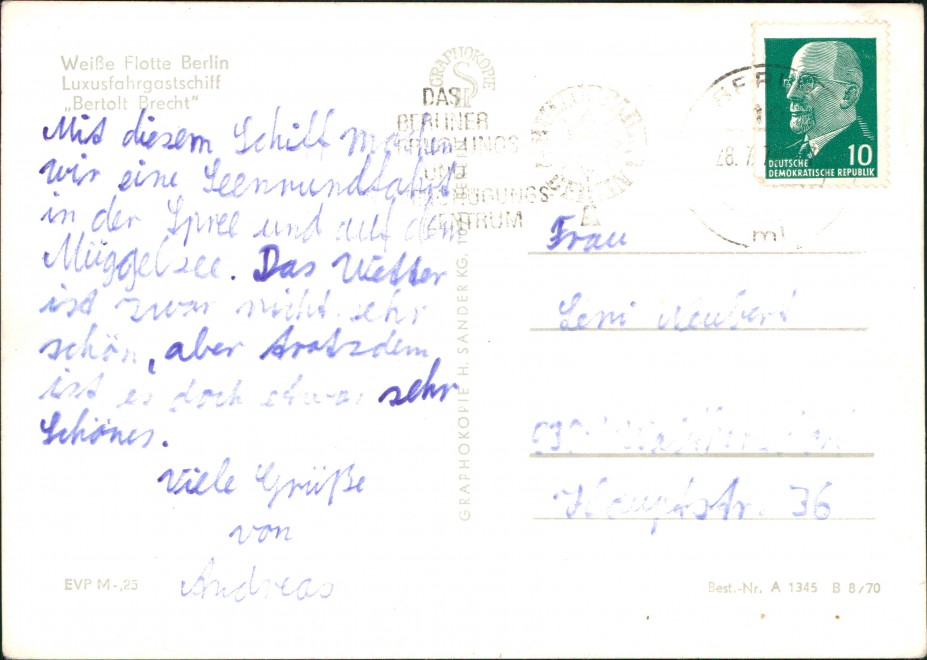 Weiße Flotte Berlin
Luxusfahrgastschiff
„Bertolt Brecht"
Mit diesem Schiff machen
wir eine Seenrundfahrt
in der Spree und auf dem
Müggelsee. Das Wetter
ist zwar nicht sehr
schön, aber trotzdem
ist es doch etwas sehr
Schönes.
Viele Grüße
von
Andreas
EVP M-,25
GRAPHOKOPIE
GRAPHOKOPIE H. SANDER KG,
DAS
BERLINER
UND
ZENTRUM
28. 7.
DEUTSCHE
DEMOKRATISCHE REPUBLIK
10
Frau
Leni Neubert
Hauptstr. 36
Best.-Nr. A 1345 B 8/70